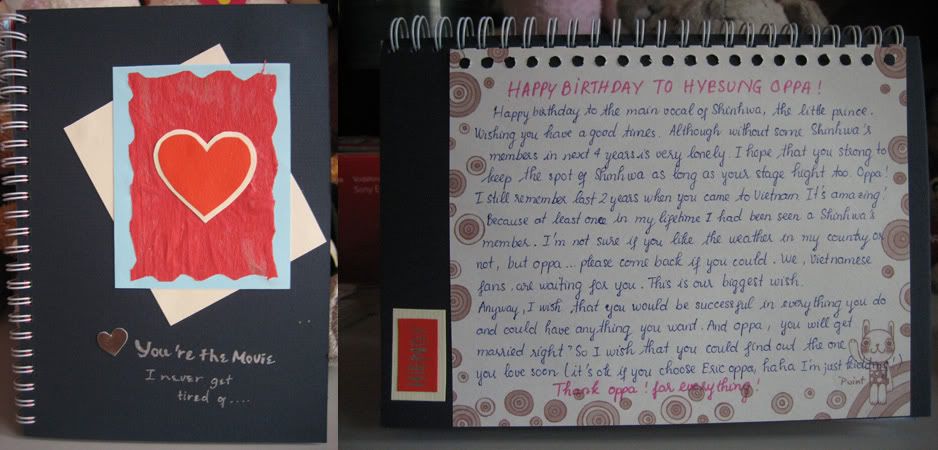 You're the Movie
I never get
tired of....
HAPPY BIRTHDAY TO HYESUNG OPPA !
Happy birthday to the main vocal of Shinhwa, the little prince.
Wishing you have a good times. Although without some Shinhwa's
members in next 4 years is very lonely. I hope that you strong to
keep the spot of Shinhwa as long as your stage hight too. Oppa!
I still remember last 2 years when you came to Vietnam. It's amazing!
Because at least once in my lifetime I had been seen a Shinhwa's
member. I'm not sure if you like the weather in my country or
not, but oppa ... please come back if you could. We, Vietnamese
fans are waiting for you. This is our biggest wish.
Anyway, I wish that you would be successful in everything you do
and could have anything you want. And oppa, you will get
married right? So I wish that you could find out the one
you love soon (it's ok if you choose Eric oppa, haha I'm just kidding)
Thank oppa! for everything!
Point